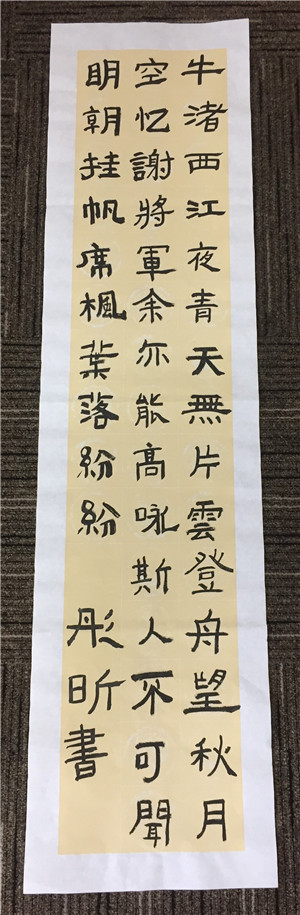 牛渚西江夜青天無片雲登舟望秋月
空忆謝將軍余尓能高咏斯人不可聞
明朝挂帆席楓葉落紛紛
彤昕書